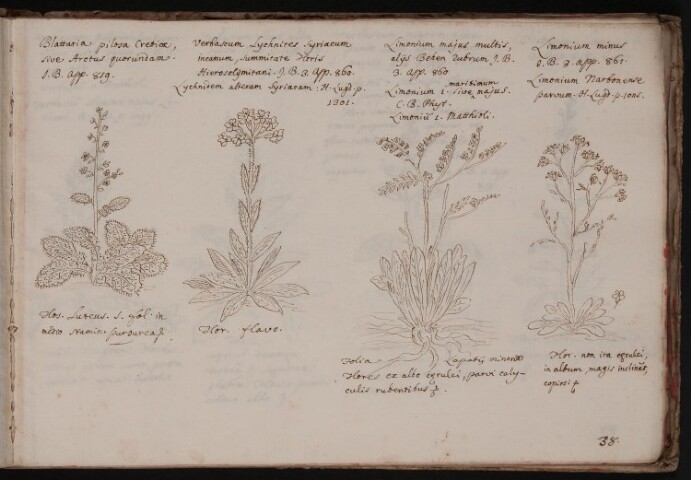 Blattaria pilosa Cretica,
sive Arctus quorundam.
J.B. App. 859.
Verbascum Lychnites Syriacum
incanum, summitate Floris
Hierosolymitani. J.B. 3. App. 860.
Lychnitem alteram Syriacam. H. Lugd. p.
1301.
Limonium majus multis,
aliis Behen rubrum J.B.
3. App. 860
Limonium 1. sive maritimum majus.
C.B. Phyt.
Limoniū 1. Matthioli.
Limonium minus
J.B. 3. App. 861.
Limonium Narbonense
parvum. H. Lugd. p.
Flos. Luteus. 5. fol. in
medio stamin. purpurea
Flor. flavi.
Folia Lapathi
Flores ex albo cærulei, parvi caly-
culis rubentibus
Flor. non ita cærulei,
in album magis
copiosi
38.